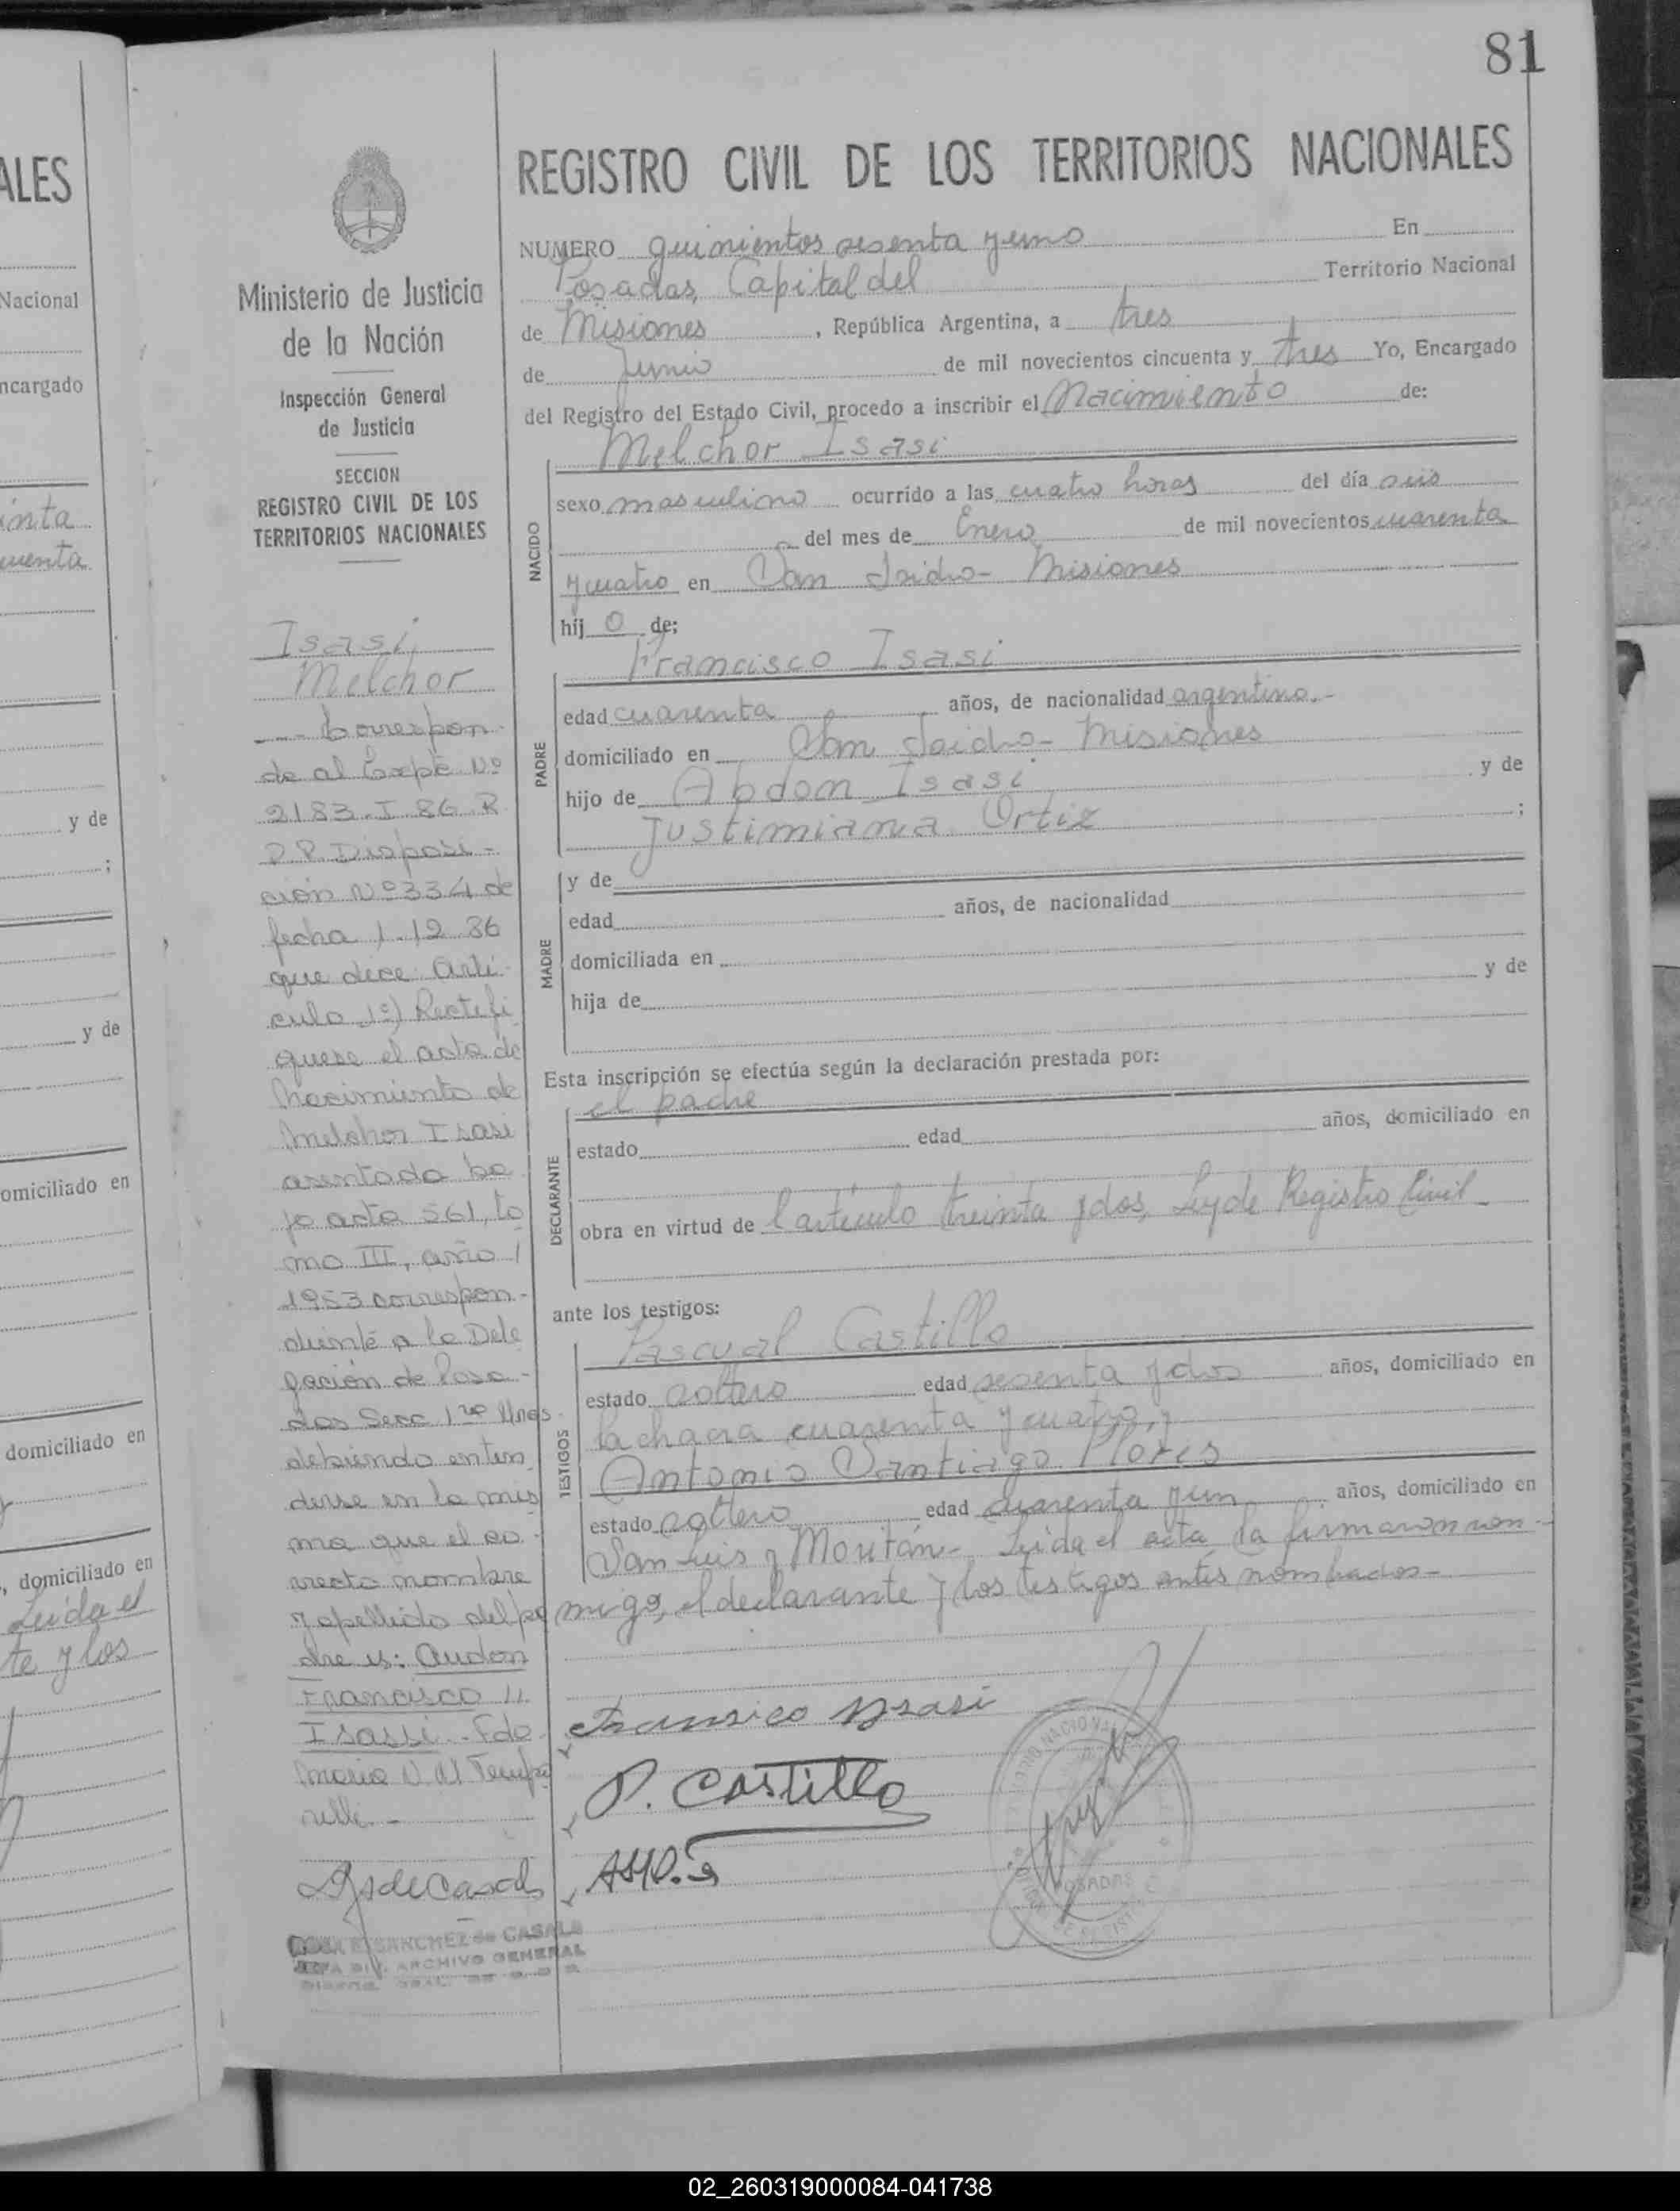 81
ALES
Nacional
ncargado
inta
uenta
y de
;
y de
omiciliado en
domiciliado en
, domiciliado en
Leida el
te y los
Ministerio de Justicia
de la Nación
Inspección General
de Justicia
SECCION
REGISTRO CIVIL DE LOS
TERRITORIOS NACIONALES
Isasi,
Melchor
--- Correspon-
de al Expte Nº
2183.I.86.R
D.P. Disposi-
ción Nº 334 de
fecha 1.12.86
que dice: Artí-
culo 1º) Rectifi
quese el acta de
Nacimiento de
Melchor Isasi
asentada ba
jo acta 561, to
mo III, año /
1953 correspon-
diente a la Dele
gación de Posa-
das Secc 1ra Mnes.
debiendo enten
derse en la mis
ma que el co-
rrecto nombre
y apellido del pa
dre es: Audon
Francisco //
Isassi.- Fdo
Maria
REGISTRO CIVIL DE LOS TERRITORIOS NACIONALES
NUMERO quinientos sesenta y uno En
Posadas, Capital del Territorio Nacional
de Misiones, República Argentina, a tres
de Junio de mil novecientos cincuenta y tres Yo, Encargado
del Registro del Estado Civil, procedo a inscribir el Nacimiento de:
Melchor Isasi
NACIDO
sexo masculino ocurrido a las cuatro horas del día seis
del mes de Enero de mil novecientos cuarenta
y cuatro en San Isidro - Misiones
hij o de;
Francisco Isasi
PADRE
edad cuarenta años, de nacionalidad argentino.-
domiciliado en San Isidro - Misiones
hijo de Abdon Isasi y de
Justimiana Ortiz ;
MADRE
y de
edad años, de nacionalidad
domiciliada en
hija de y de
Esta inscripción se efectúa según la declaración prestada por:
el padre
DECLARANTE
estado edad años, domiciliado en
obra en virtud de l artículo treinta y dos, Ley de Registro Civil -
ante los testigos:
Pascual Castillo
TESTIGOS
estado soltero edad sesenta y dos años, domiciliado en
la chacra cuarenta y cuatro, y
Antonio Santiago Flores
estado soltero edad cuarenta y un años, domiciliado en
San Luis y Moritán - Leida el acta la firmaron con-
migo, el declarante y los testigos antes nombrados -
Fransico Ysasi
P. CASTILLO
POSADAS
SANCHEZ de CASALS
JEFA DIV. ARCHIVO GENERAL
02_260319000084-041738